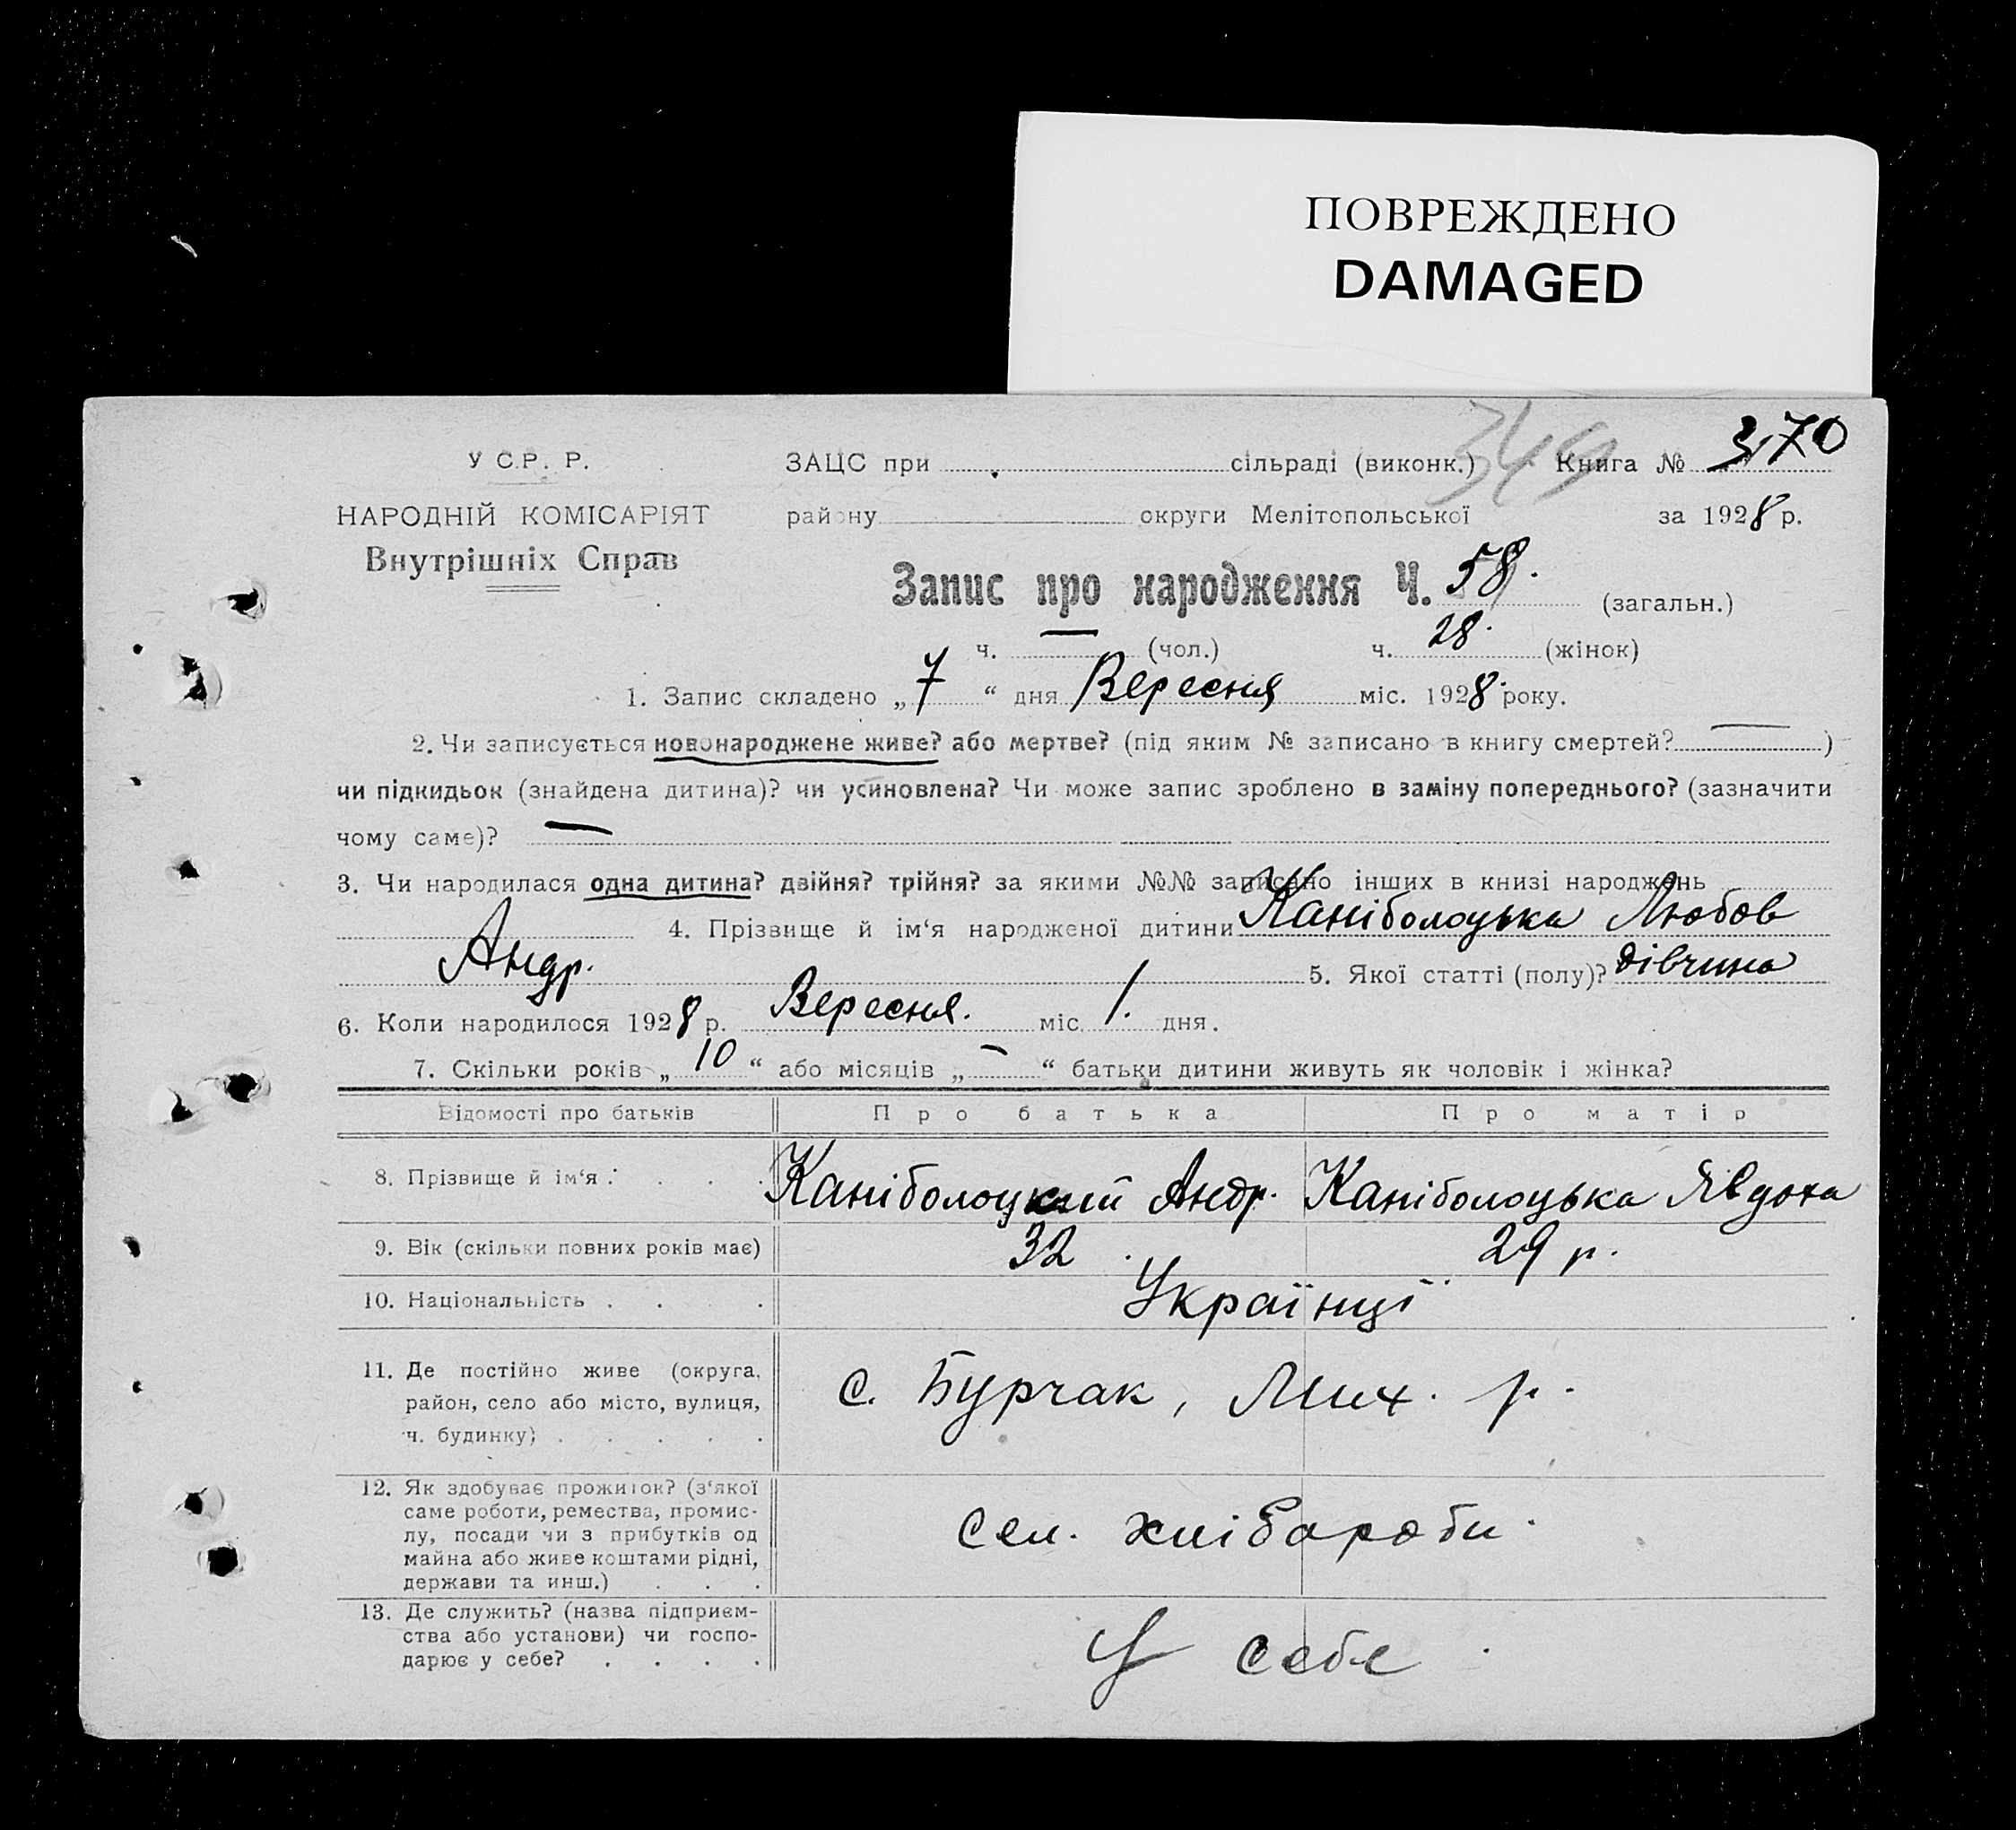 ПОВРЕЖДЕНО
DAMAGED
349
У С.Р. Р. ЗАЦС при сільраді (виконк.) Книга № 370
НАРОДНІЙ КОМІСАРІЯТ району округи Мелітопольської за 1928 р.
Внутрішніх Справ
Запис про народження Ч. 58. (загальн.)
ч. — (чол.) ч. 28. (жінок)
1. Запис складено „7“ дня Вересня міс. 1928 року.
2. Чи записується новонароджене живе? або мертве? (під яким № записано в книгу смертей? — )
чи підкидьок (знайдена дитина)? чи усиновлена? Чи може запис зроблено в заміну попереднього? (зазначити
чому саме)? —
3. Чи народилася одна дитина? двійня? трійня? за якими №№ записано інших в книзі народжень
4. Прізвище й ім‘я народженої дитини Каніболоцька Любов
Андр. 5. Якої статті (полу)? дівчина
6. Коли народилося 1928 р. Вересня. міс. 1. дня.
7. Скільки років „10“ або місяців „—“ батьки дитини живуть як чоловік і жінка?
Відомості про батьків Про батька Про матір
8. Прізвище й ім‘я . . . . Каніболоцький Андр. Каніболоцька Явдоха
9. Вік (скільки повних років має) 32 29 р.
10. Національність . . . . Українці
11. Де постійно живе (округа,
район, село або місто, вулиця,
ч. будинку) . . . . . с. Бурчак, Мих. р.
12. Як здобуває прожиток? (з‘якої
саме роботи, ремества, промис-
лу, посади чи з прибутків од
майна або живе коштами рідні,
держави та инш.) . . . Сел. хлібороби.
13. Де служить? (назва підприєм-
ства або установи) чи госпо-
дарює у себе? . . . . У себе